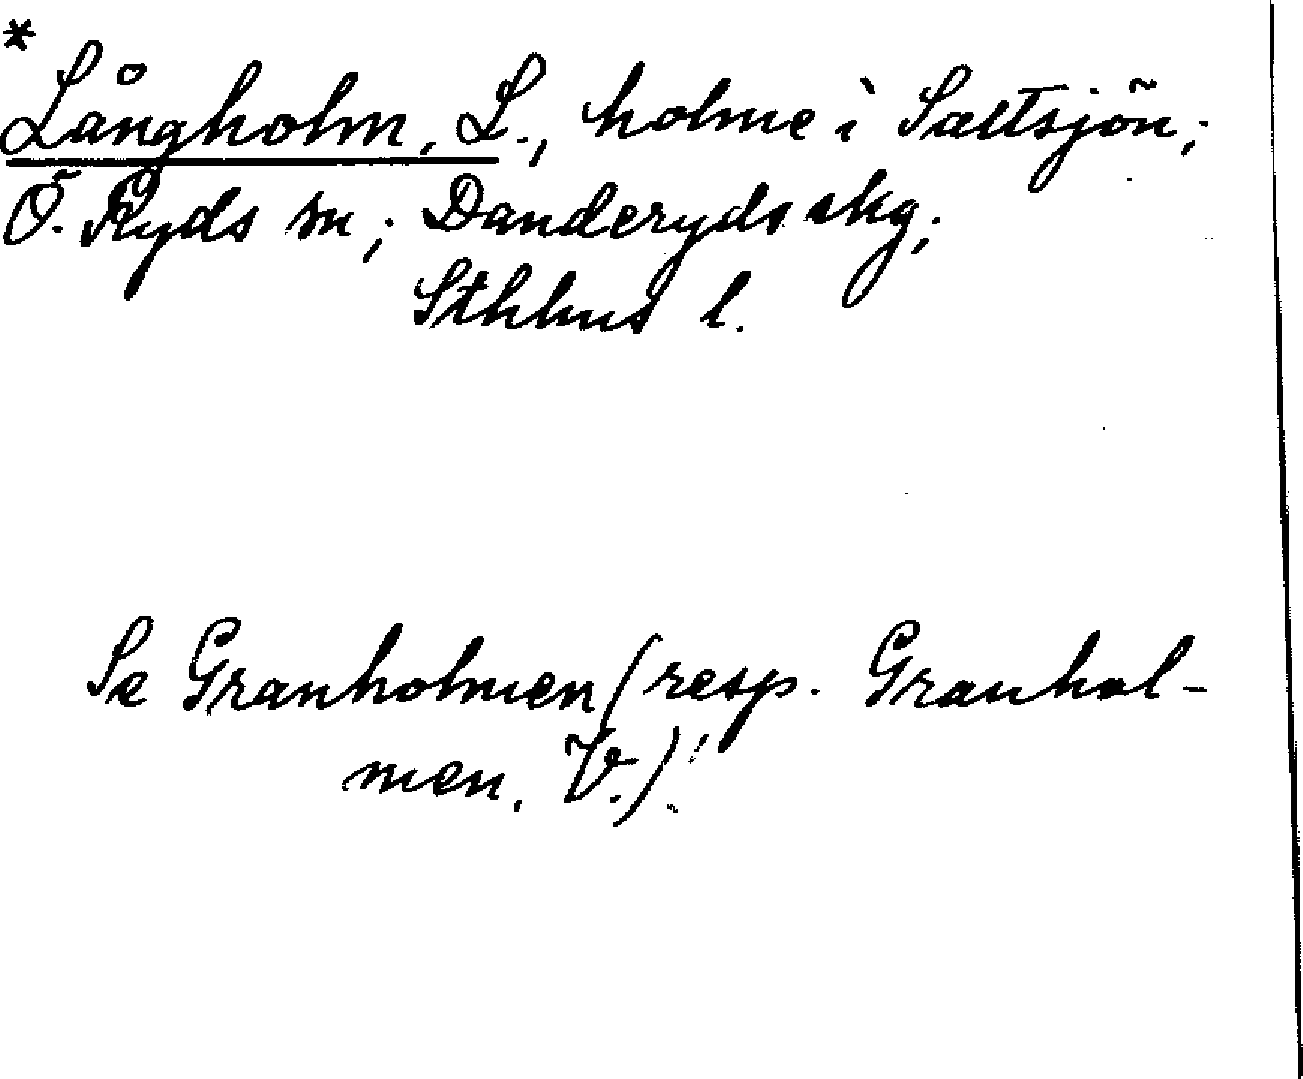 *
Långholm, L., holme i Saltsjön;
Ö. Ryds sn; Danderyds skg;
Sthlms l.
Se Granholmen (resp. Granhol-
men, V.)!